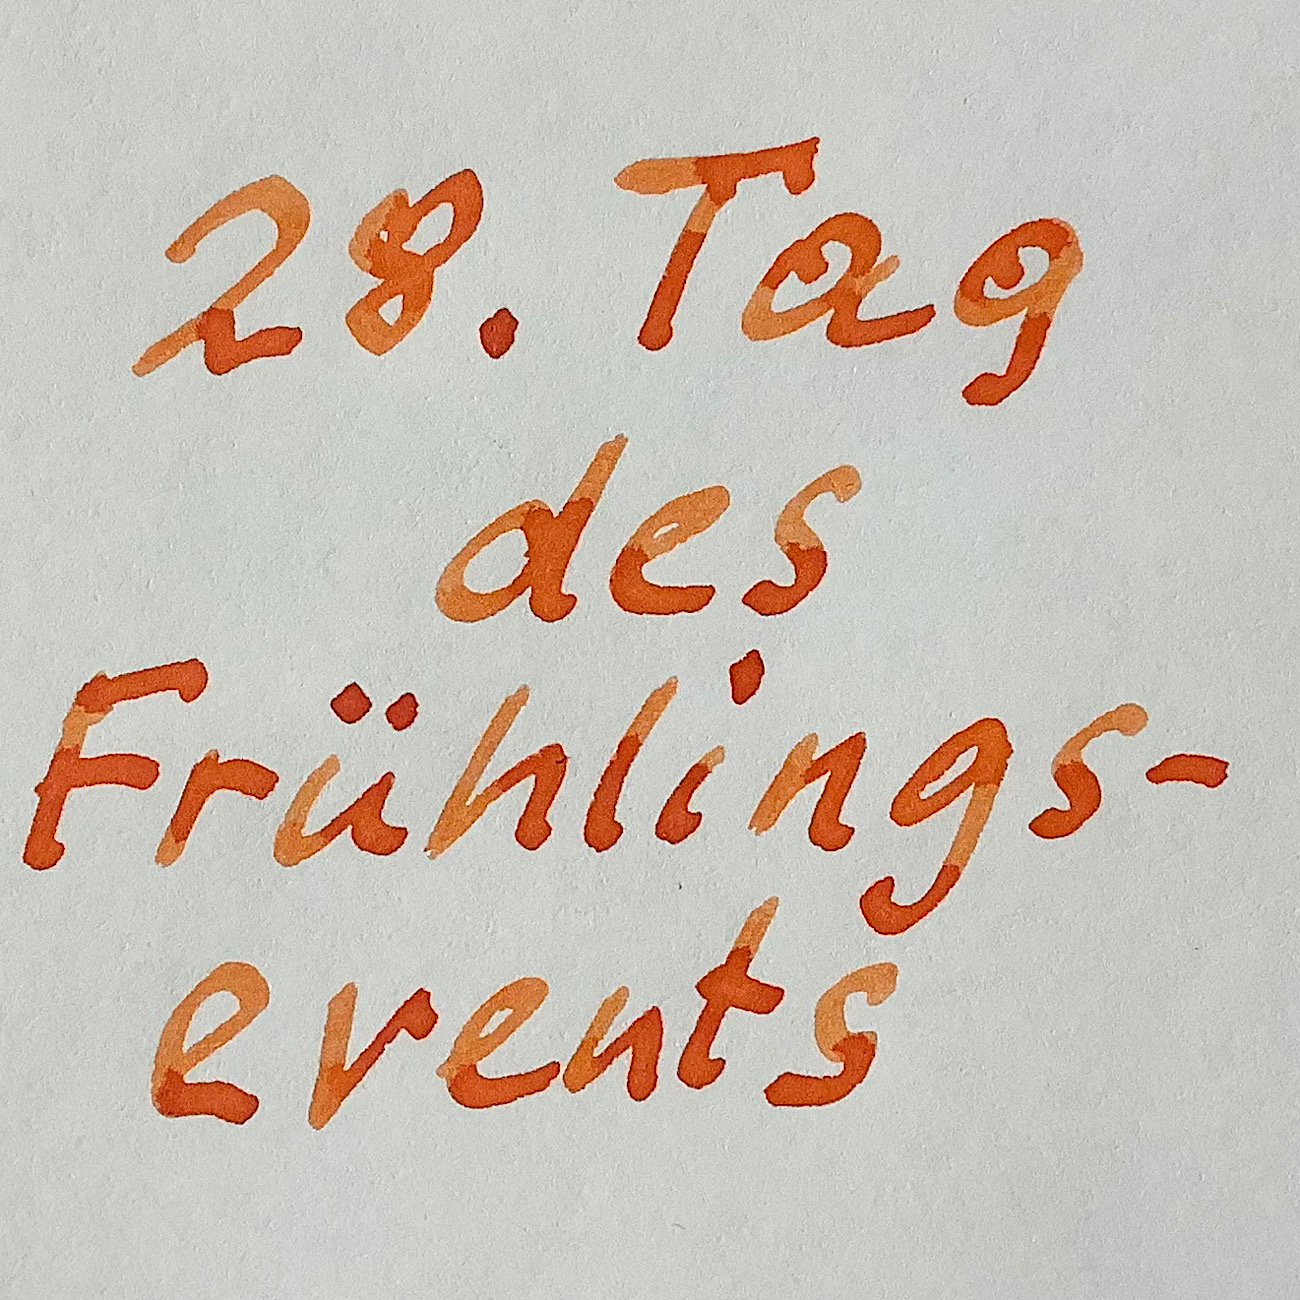 28. Tag
des
Frühlings-
events